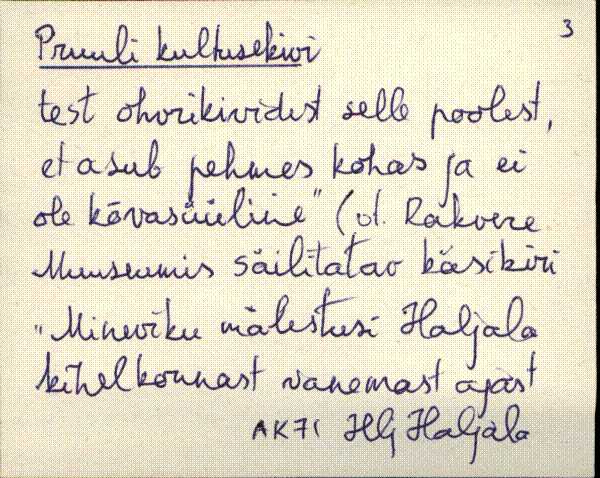 Pruuli kultusekivi 3
test ohvrikividest selle poolest,
et asub pehmes kohas ja ei
ole kõvasüüline" (vt. Rakvere
Muuseumis säilitatav käsikiri
"Mineviku mälestusi Haljala
kihelkonnast vanemast ajast
AK71 HlJ Haljala